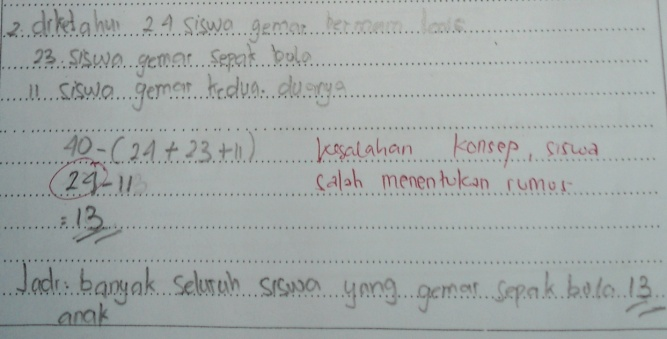 2. diketahui 24 siswa gemar bermain
23 siswa gemar sepak bola
11 siswa gemar kedua-duanya
40-(24+23+11) kesalahan konsep, siswa
24-11 salah menentukan rumus
=13
Jadi: banyak seluruh siswa yang gemar sepak bola 13
anak